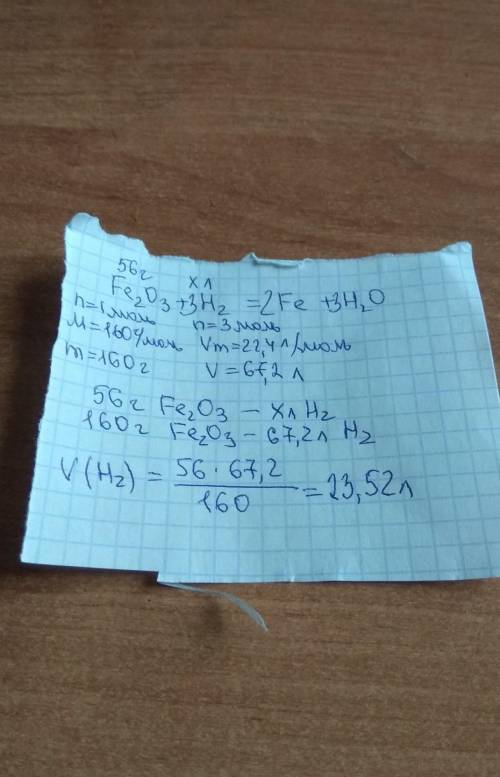 56г хл
Fe₂O₃ + 3H₂ = 2Fe + 3H₂O
n=1моль n=3моль
M=160г/моль Vm=22,4л/моль
m=160г V=67,2л
56г Fe₂O₃ – хл H₂
160г Fe₂O₃ – 67,2л H₂
V(H₂) = 56·67,2 / 160 = 23,52л